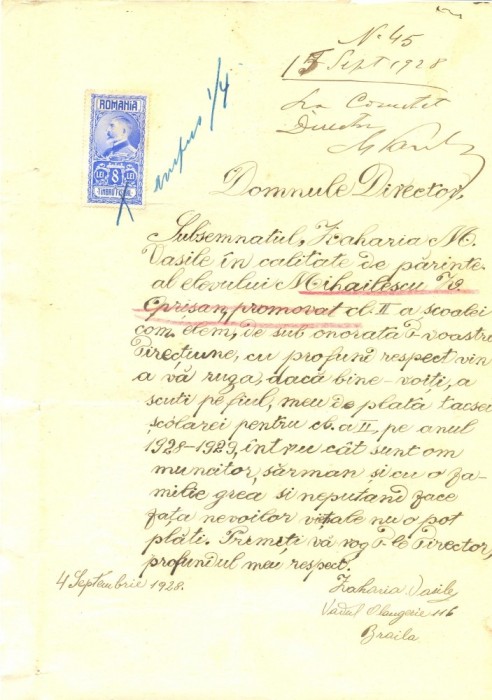 N. 45
15 Sept 1928
La Comitet
Director
ROMANIA
LEI 8 LEI
TIMBRU FISCAL
1/4
Domnule Director,
Subsemnatul, Zaharia M.
Vasile în calitate de părinte
al elevului Mihailescu
Oprisan, promovat cl. II a scoalei
com. elem, de sub onorată D-voastră
Direcțiune, cu profund respect vin
a vă ruga, dacă bine-voiți, a
scuti pe fiul, meu de plată tacsei
școlarei pentru cl. a II, pe anul
1928-1929, întru cât sunt om
muncitor, sărman și cu o fa-
milie grea si neputând face
față nevoilor vitale nu o pot
plăti. Primiți vă rog D-le Director,
profundul meu respect.
4 Septembrie 1928.
Zaharia Vasile
Vadul Olangerie 116
Braila